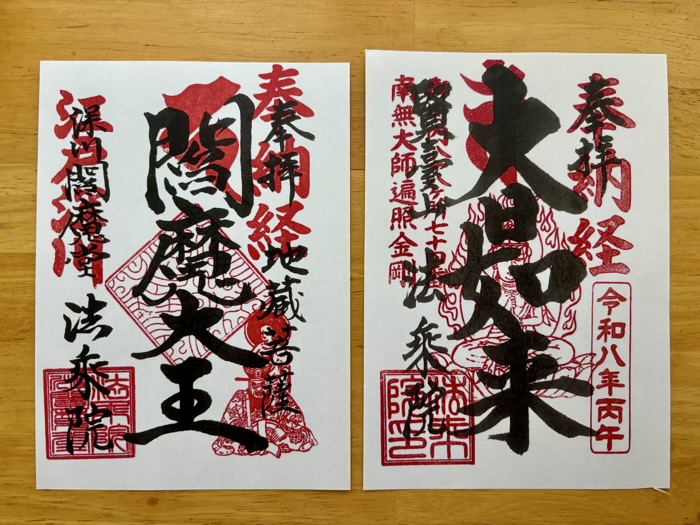 奉納経
奉拝
地蔵菩薩
閻魔大王
深川閻魔堂
法乗院
奉納経
奉拝
令和八年丙午
大日如来
七十四
賢臺山
法乗院
南無大師遍照金剛